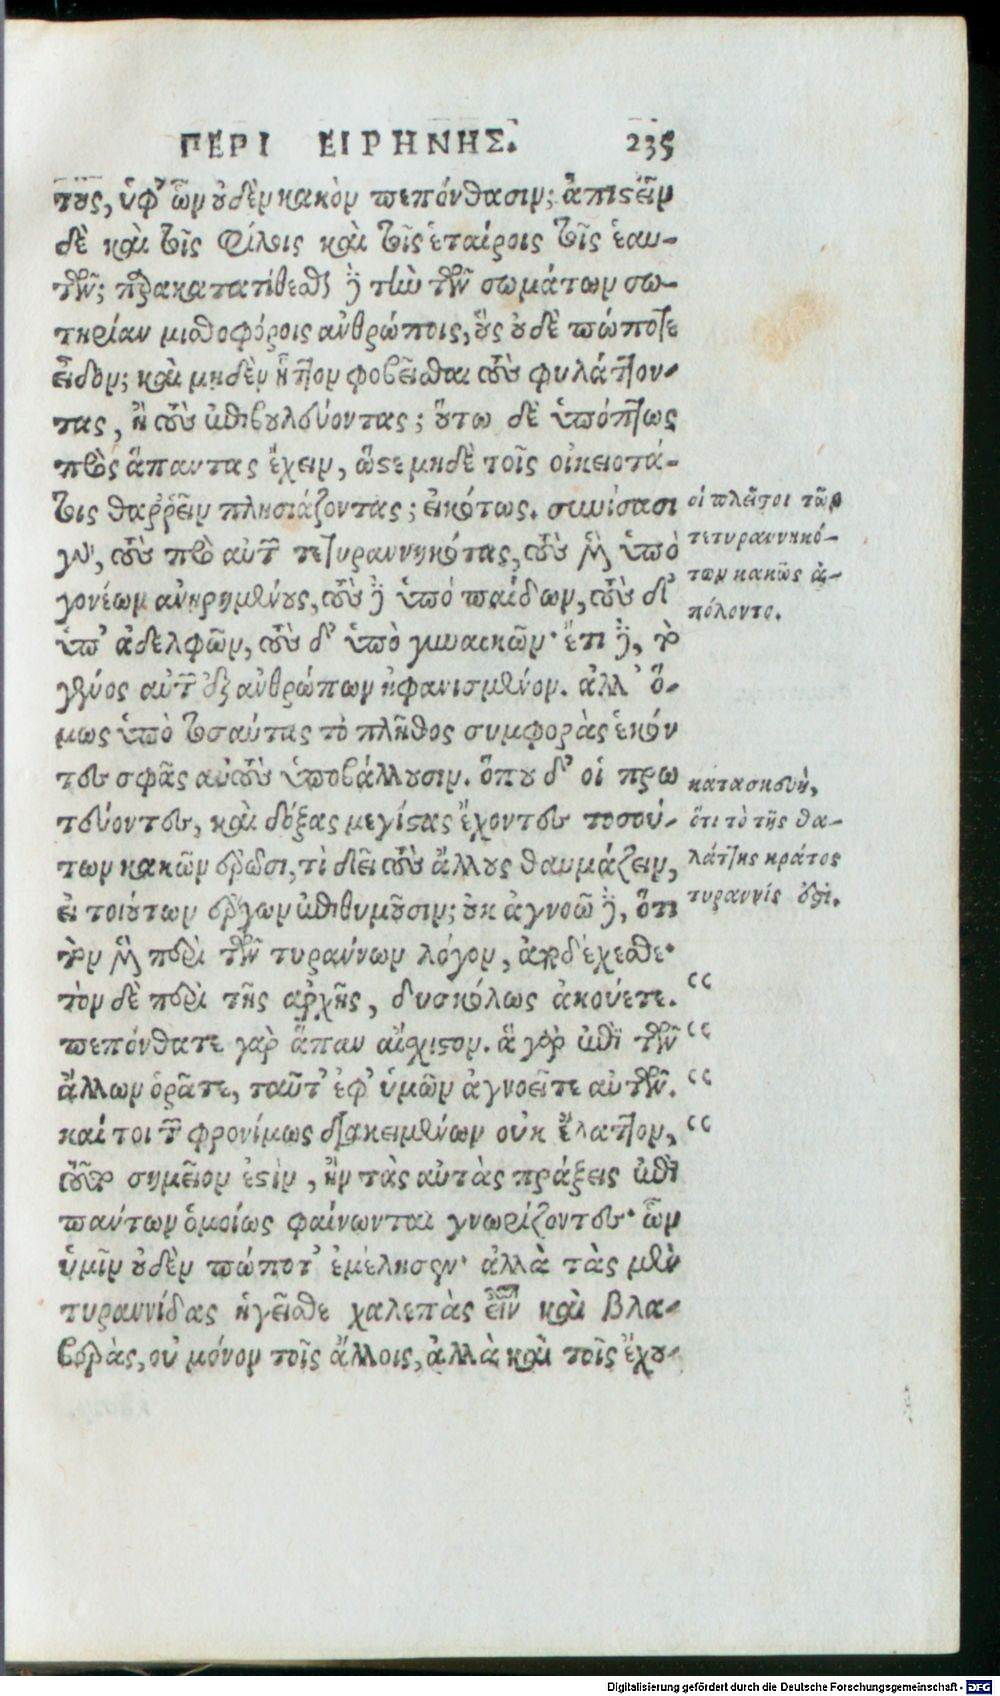 ΠΕΡΙ ΕΙΡΗΝΗΣ. 235
τους, ὑφ' ὧν οὐδὲν κακὸν πεπόνθασιν; ἀπιστεῖν
δὲ καὶ τοῖς φίλοις καὶ τοῖς ἑταίροις τοῖς ἑαυ-
τῶν; παρακατατίθεσθαι δὲ τὴν τῶν σωμάτων σω-
τηρίαν μισθοφόροις ἀνθρώποις, οὓς οὐδὲ πώποτε
εἶδον; καὶ μηδὲν ἧττον φοβεῖσθαι τοὺς φυλάττον-
τας, ἢ τοὺς ἐπιβουλεύοντας; οὕτω δὲ ὑπόπτως
πρὸς ἅπαντας ἔχειν, ὥστε μηδὲ τοῖς οἰκειοτά-
τοις θαῤῥεῖν πλησιάζοντας; εἰκότως. συνίσασι
γὰρ, τοὺς πρὸ αὐτῶν τετυραννηκότας, τοὺς μὲν ὑπὸ
γονέων ἀνῃρημένους, τοὺς δὲ ὑπὸ παίδων, τοὺς δ'
ὑπ' ἀδελφῶν, τοὺς δ' ὑπὸ γυναικῶν· ἔτι δὲ, τὸ
γένος αὐτῶν ἐξ ἀνθρώπων ἠφανισμένον. ἀλλ' ὅ-
μως ὑπὸ τοσαύτας τὸ πλῆθος συμφορὰς ἑκόν
τες σφᾶς αὐτοὺς ὑποβάλλουσιν. ὅπου δ' οἱ πρω
τεύοντες, καὶ δόξας μεγίστας ἔχοντες τοσού-
των κακῶν ἐρῶσι, τὶ δεῖ τοὺς ἄλλους θαυμάζειν,
εἰ τοιούτων ἔργων ἐπιθυμοῦσιν; οὐκ ἀγνοῶ δὲ, ὅτι
τὸν μὲν περὶ τῶν τυράννων λόγον, ἀποδέχεσθε·
τὸν δὲ περὶ τῆς ἀρχῆς, δυσκόλως ἀκούετε.
πεπόνθατε γὰρ ἅπαν αἴσχιστον. ἃ γὰρ ἐπὶ τῶν
ἄλλων ὁρᾶτε, ταῦτ' ἐφ' ὑμῶν ἀγνοεῖτε αὐτῶν.
καί τοι τῶν φρονίμως διακειμένων οὐκ ἔλαττον,
τοῦτο σημεῖον ἐστὶν, ἢν τὰς αὐτὰς πράξεις ἐπὶ
πάντων ὁμοίως φαίνωνται γνωρίζοντες· ὧν
ὑμῖν οὐδὲν πώποτ' ἐμέλησεν· ἀλλὰ τὰς μὲν
τυραννίδας ἡγεῖσθε χαλεπὰς εἶναι καὶ βλα-
βερὰς, οὐ μόνον τοῖς ἄλλοις, ἀλλὰ καὶ τοῖς ἔχου-
οἱ πλεῖστοι τῶν
τετυραννηκό-
των κακῶς ἀ-
πόλοντο.
κατασκευὴ,
ὅτι τὸ τῆς θα-
λάττης κράτος
τυραννίς ἐστι.
“
“
“
“
Digitalisierung gefördert durch die Deutsche Forschungsgemeinschaft - DFG